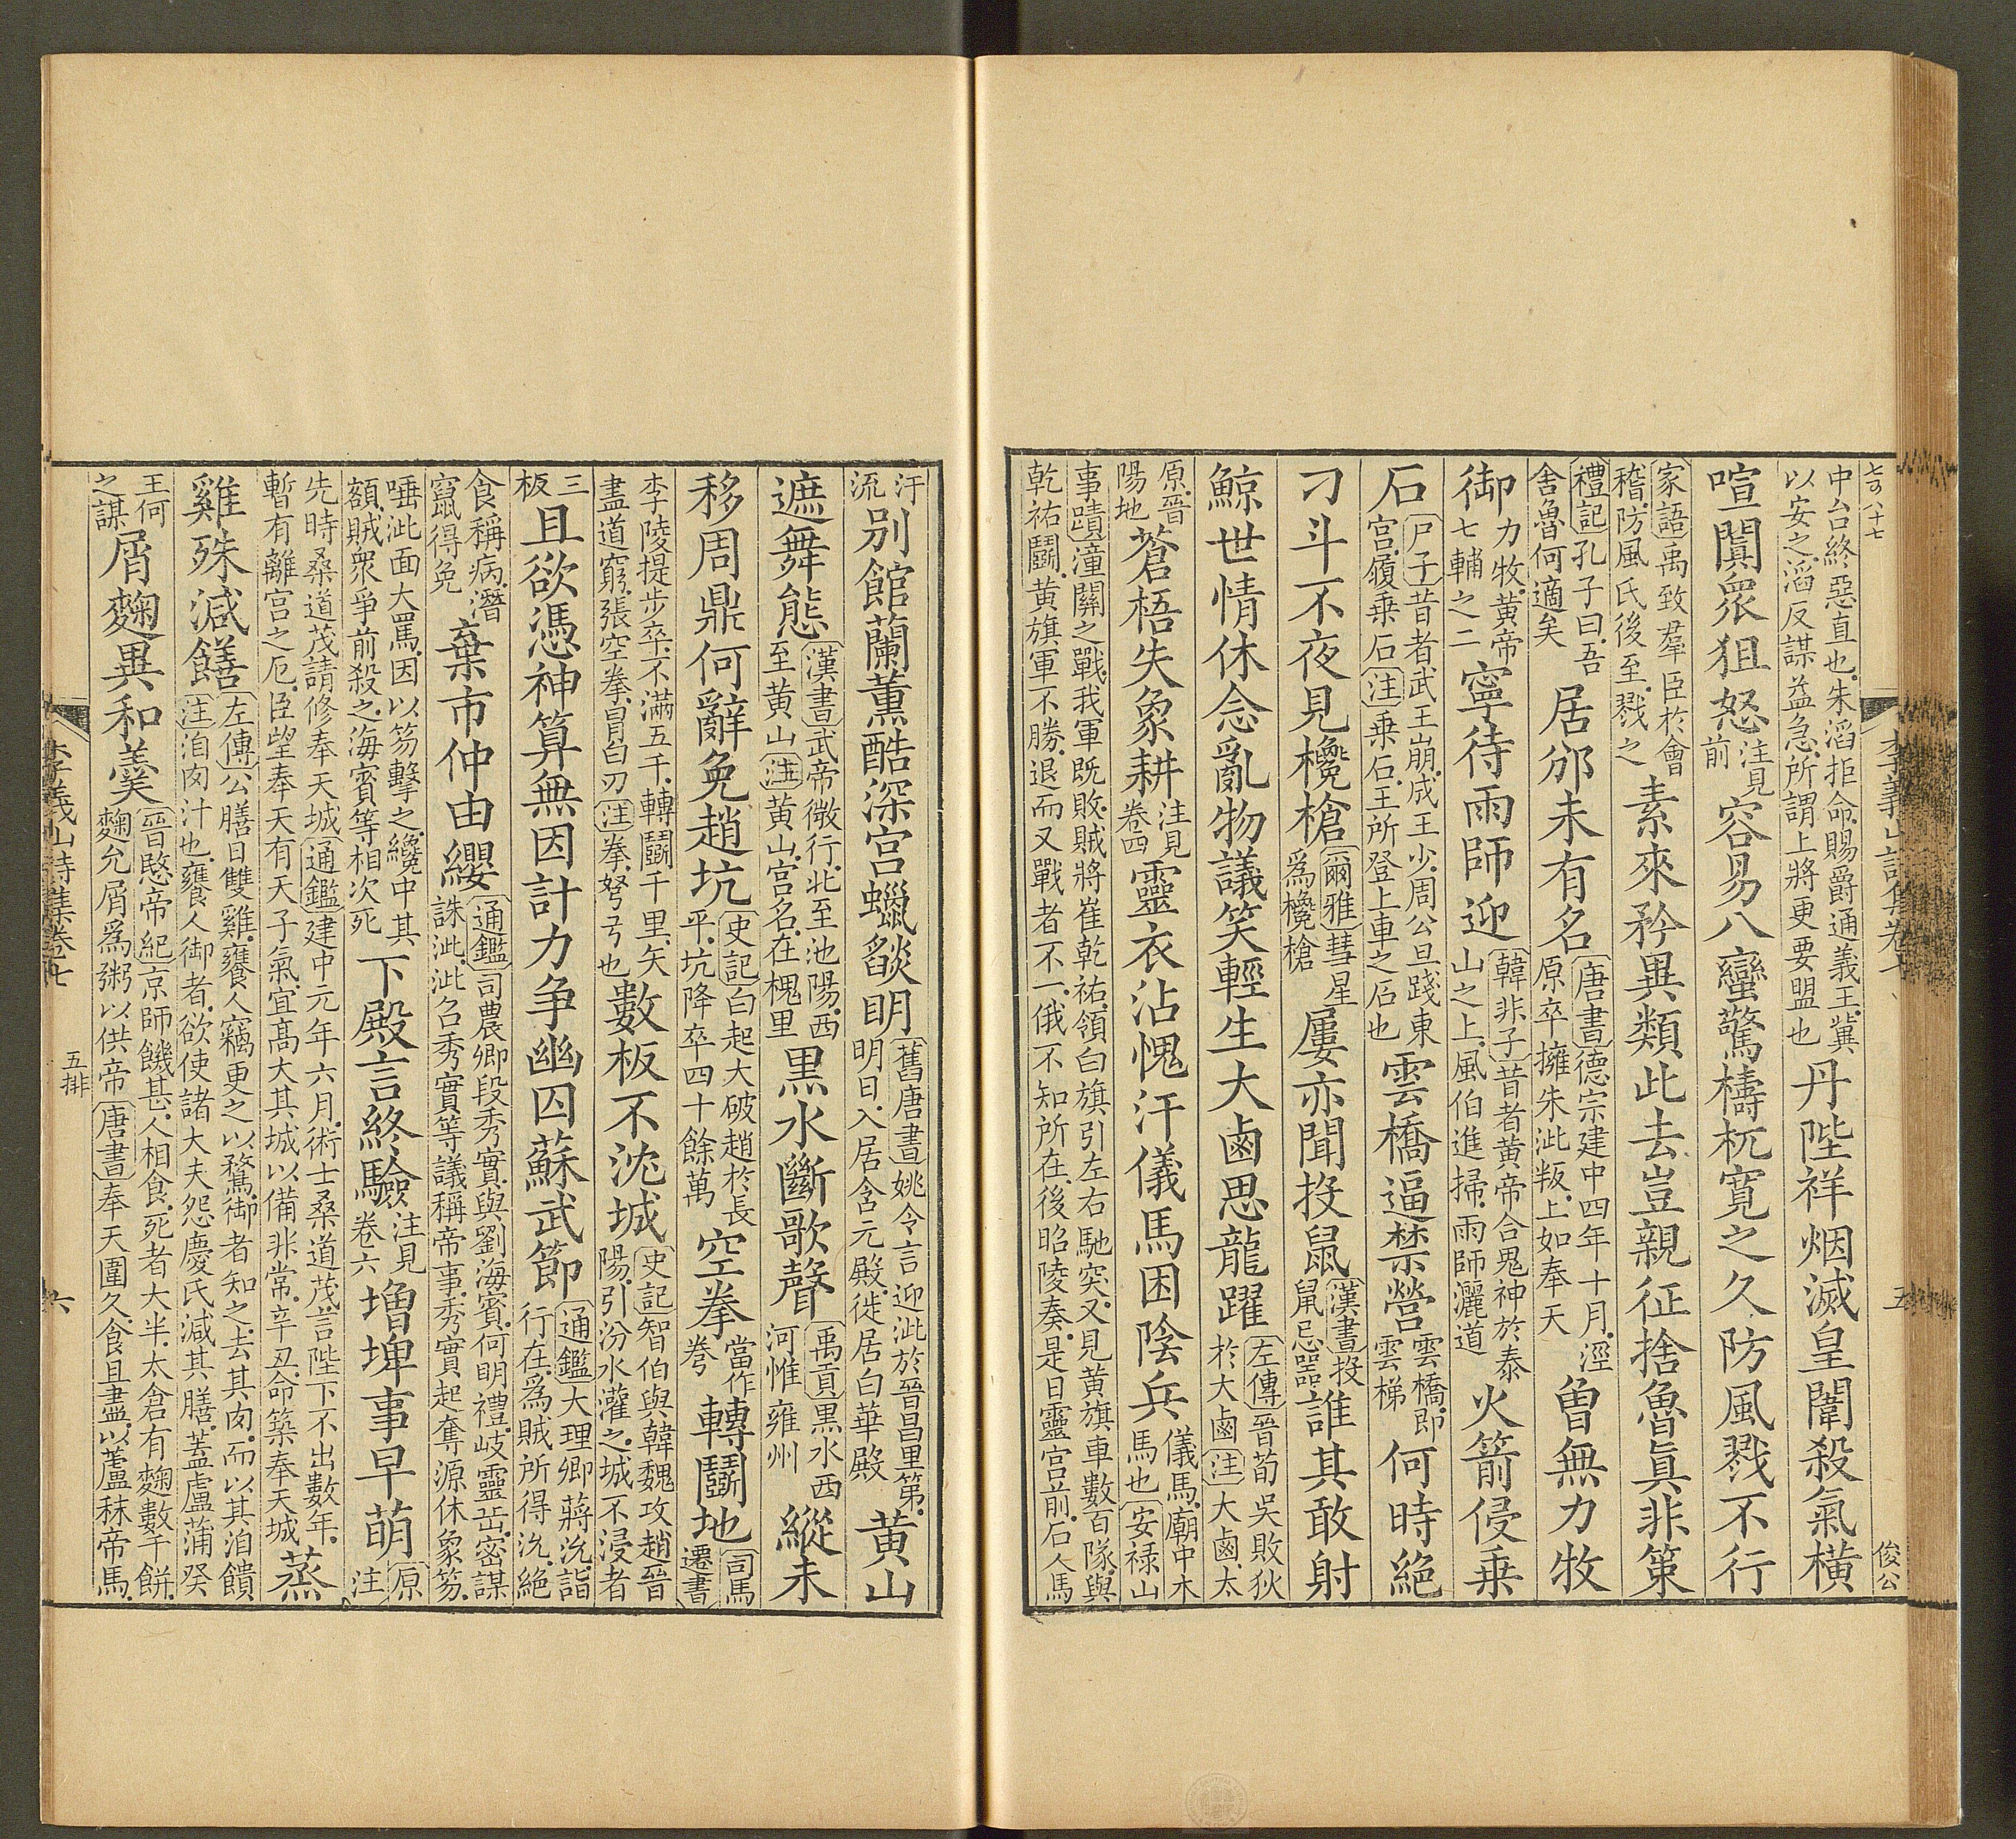 七百八十七 俊公
中台終惡直也朱滔拒命賜爵通義王冀以安之滔反謀益急所謂上將更要盟也丹陛祥烟滅皇闈殺氣橫
喧闐衆狙怒注見前容易八蠻驚檮杌寛之久防風戮不行
家語禹致羣臣於會稽防風氏後至戮之素來矜異類此去豈親征捨魯眞非策
禮記孔子曰吾舍魯何適矣居邠未有名唐書德宗建中四年十月涇原卒擁朱泚叛上如奉天曽無力牧
御力牧黃帝七輔之二寧待雨師迎韓非子昔者黃帝合鬼神於泰山之上風伯進掃雨師灑道火箭侵乗
石尸子昔者武王崩成王少周公旦踐東宮履乗石注乗石王所登上車之石也雲橋逼禁營雲橋即雲梯何時絕
刁斗不夜見欃槍爾雅彗星爲欃槍屢亦聞投鼠漢書投鼠忌器誰其敢射
鯨世情休念亂物議笑輕生大鹵思龍躍左傳晉荀吳敗狄於大鹵注大鹵太
原晉陽地蒼梧失象耕注見卷四靈衣沾愧汗儀馬困陰兵儀馬廟中木馬也安祿山
事蹟潼關之戰我軍既敗賊將崔乾祐領白旗引左右馳突又見黃旗軍數百隊與乾祐鬭黃旗軍不勝退而又戰者不一俄不知所在後昭陵奏是日靈宮前石人馬
李義山詩集卷七 五
汗流別館蘭薰酷深宮蠟燄明舊唐書姚令言迎泚於晉昌里第明日入居含元殿徙居白華殿黃山
遮舞態漢書武帝微行北至池陽西至黃山注黃山宮名在槐里黒水斷歌聲禹貢黒水西河惟雍州縱未
移周鼎何辭免趙坑史記白起大破趙於長平坑降卒四十餘萬空拳當作弮轉鬭地司馬遷書
李陵提步卒不滿五千轉鬭千里矢盡道窮張空拳冒白刃注拳弩弓也數板不沈城史記智伯與韓魏攻趙晉陽引汾水灌之城不浸者
三板且欲憑神算無因計力争幽囚蘇武節通鑑大理卿蔣沇詣行在爲賊所得沇絕
食稱病潛竄得免棄市仲由纓通鑑司農卿段秀實與劉海賓何明禮岐靈岳密謀誅泚泚召秀實等議稱帝事秀實起奪源休象笏
唾泚面大罵因以笏擊之纔中其額賊衆爭前殺之海賓等相次死下殿言終驗注見卷六増埤事早萌原注
先時桑道茂請修奉天城通鑑建中元年六月術士桑道茂言陛下不出數年暫有離宮之厄臣望奉天有天子氣宜高大其城以備非常辛丑命築奉天城蒸
雞殊減饍左傳公膳日雙雞饔人竊更之以鶩御者知之去其肉而以其洎饋注洎肉汁也饔人御者欲使諸大夫怨慶氏減其膳蓋盧蒲癸
王何之謀屑麴異和羹晉愍帝紀京師饑甚人相食死者大半太倉有麴數千餅麴允屑爲粥以供帝唐書奉天圍久食且盡以蘆秣帝馬
李義山詩集卷七 五排 六